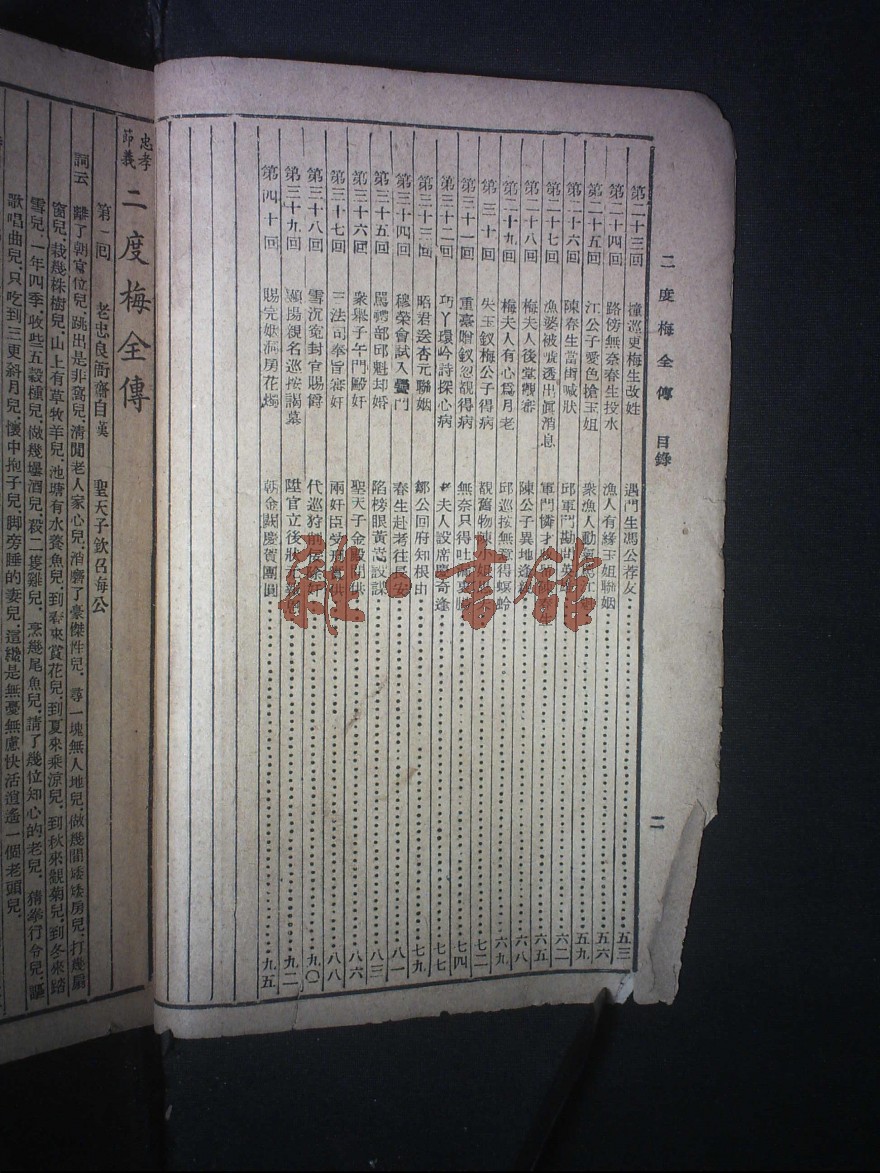 二度梅全傳 目錄 二
第二十三回 撞巡更梅生改姓 遇門生馮公荐友 五三
第二十四回 路傍無奈春生投水 漁人有緣玉姐聯姻 五六
第二十五回 江公子愛色搶玉姐 衆漁人動 五九
第二十六回 陳春生當街喊狀 邱軍門勘 六二
第二十七回 漁婆被唬透出眞消息 軍門憐才 六五
第二十八回 梅夫人後堂觀審 陳公子異地逢 六八
第二十九回 梅夫人有心爲月老 邱巡按無意得螟蛉 六九
第三十回 失玉釵梅公子得病 覩舊物陳小姐 七二
第三十一回 重臺贈釵忽覩得病 無奈只得吐 七四
第三十二回 巧丫環吟詩探心病 夫人設席慶奇逢 七七
第三十三回 昭君送杏元聯姻 鄒公回府知根由 七九
第三十四回 穆榮會試入龔門 春生赴考往長安 八一
第三十五回 罵禮部邱魁却婚 陷榜眼黃嵩設謀 八三
第三十六回 衆舉子午門毆奸 聖天子金殿 八六
第三十七回 三法司奉旨審奸 兩奸臣受刑 八八
第三十八回 雪沉寃封官賜爵 代巡狩 九〇
第三十九回 顯揚親名巡按謁墓 陞官立後 九二
第四十回 賜完姻洞房花燭 朝金闕慶賀團圓 九五
雜·書舘
忠孝節義 二度梅全傳
第一回 老忠良衙齋自嘆 聖天子欽召梅公
詞云 離了朝官位兒，跳出是非窩兒，清閒老人家心兒，消磨了豪傑性兒，尋一塊無人地兒，做幾間矮矮房兒，打幾扇
窗兒，栽幾株樹兒，山上有草牧羊兒，池塘有水養魚兒，到春來賞花兒，到夏來乘涼兒，到秋來觀菊兒，到冬來踏
雪兒，一年四季，收些五穀種兒，做幾壜酒兒，殺二隻雞兒，烹幾尾魚兒，請了幾位知心的老兒，猜拳行令兒，謳
歌唱曲兒，只吃到三更斜月兒，懷中抱子兒，脚旁睡的妻兒，這纔是無憂無慮快活逍遙一個老頭兒，